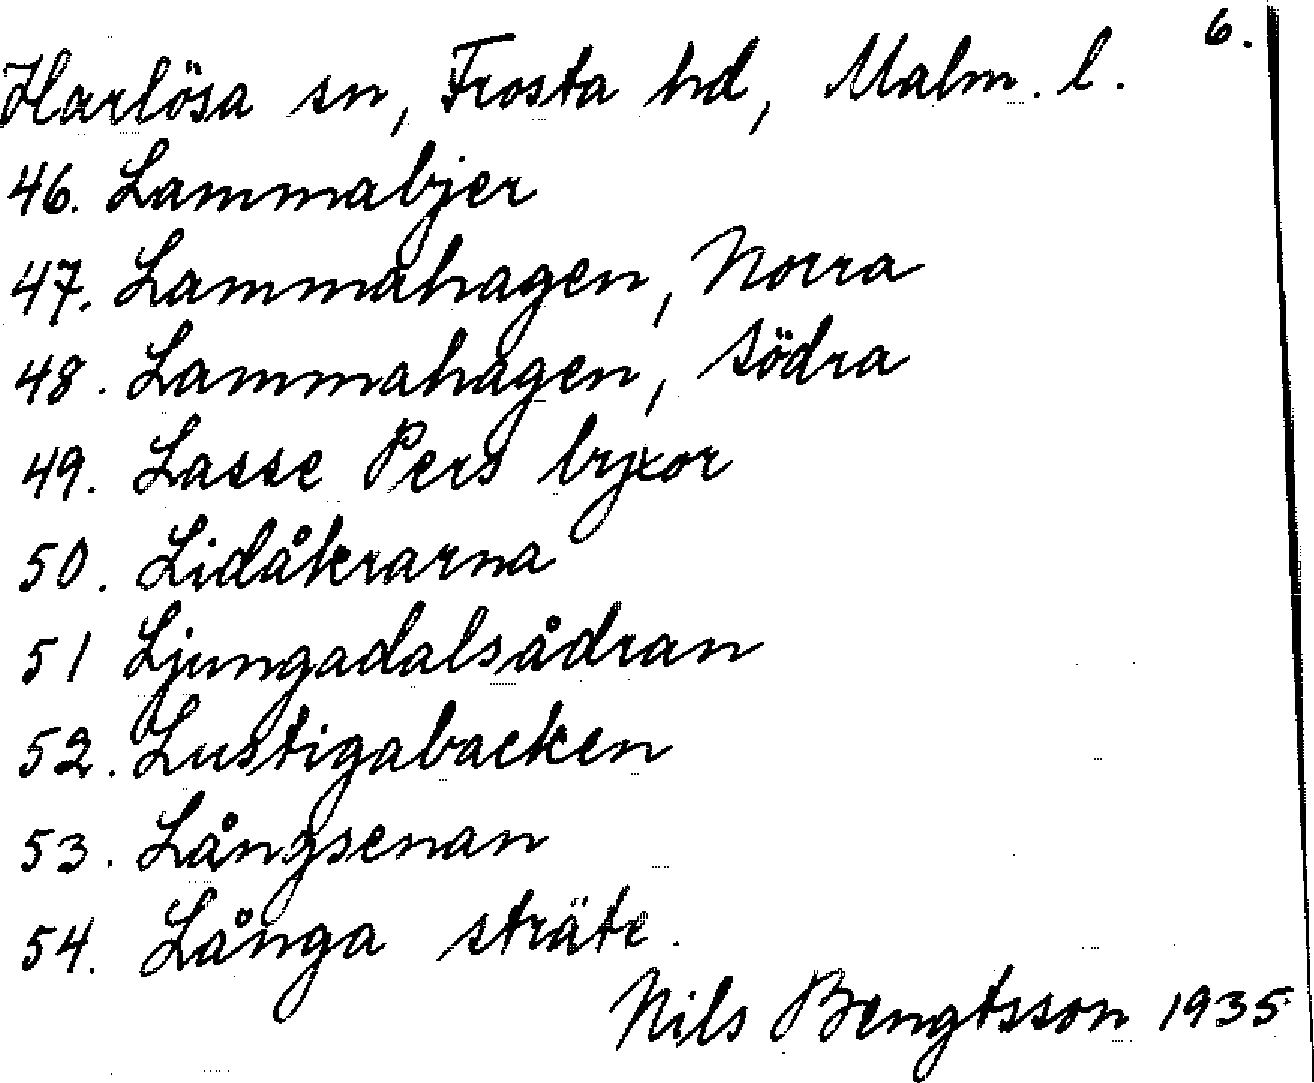 6.
Harlösa sn, Frosta hd, Malm. l.
46. Lammabjer
47. Lammahagen, Norra
48. Lammahagen, södra
49. Lasse Pers byxor
50. Lidåkrarna
51 Ljungadalsådran
52. Lustigabacken
53. Långsenan
54. Långa sträte.
Nils Bengtsson 1935